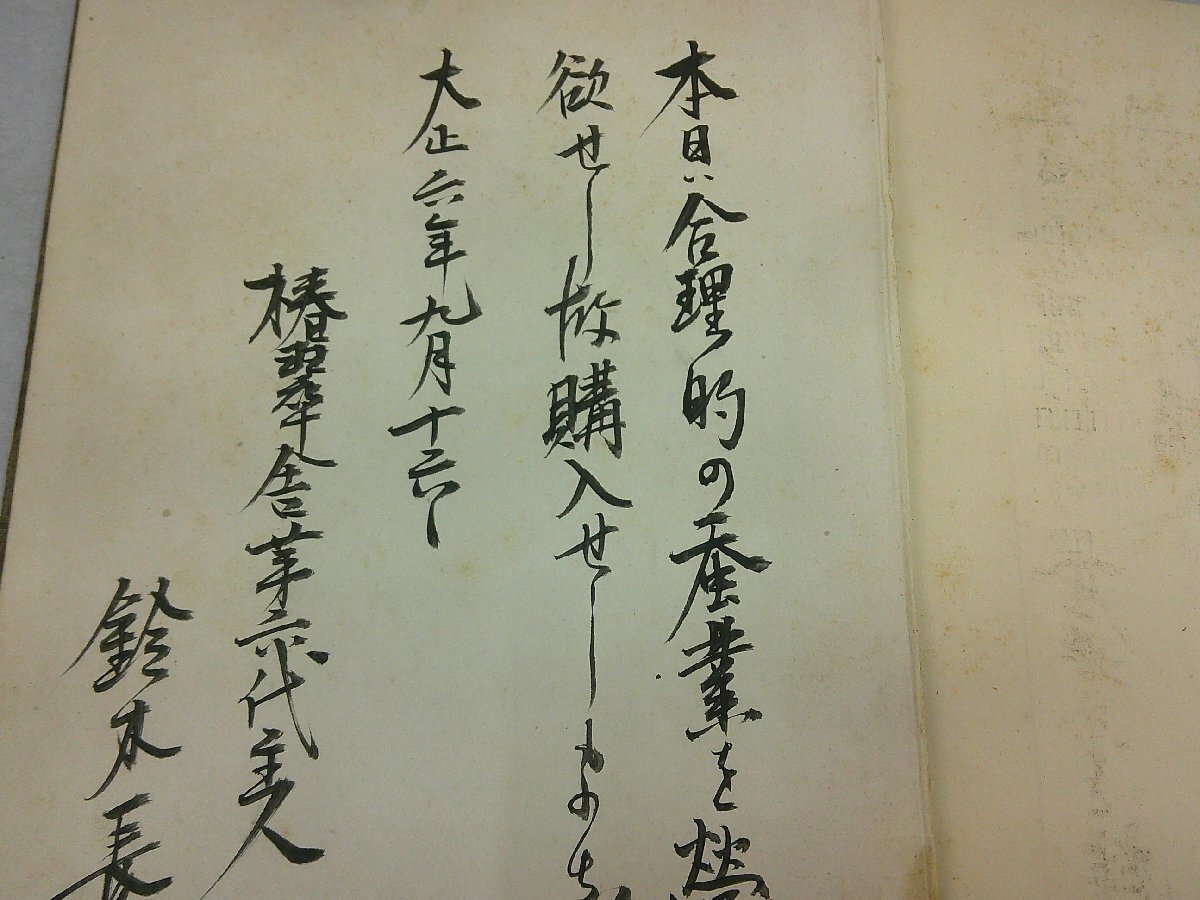 本具ハ合理的の蚕業を
欲せし故購入せしもの
大正六年九月十六
椿翠舎第六代主人
鈴木長